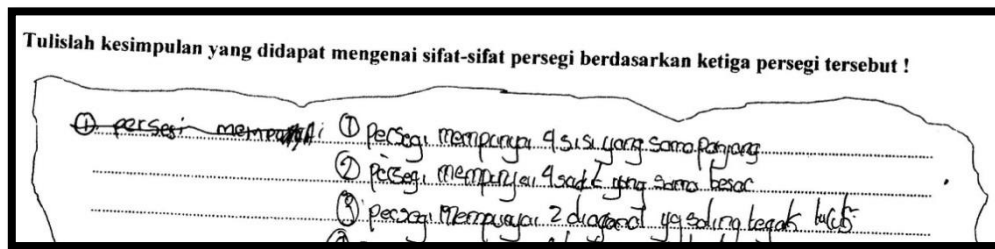 Tulislah kesimpulan yang didapat mengenai sifat-sifat persegi berdasarkan ketiga persegi tersebut !
① persegi mempunyai ① Persegi mempunyai 4 sisi yang sama panjang
② persegi mempunyai 4 sudut yang sama besar
③ persegi mempunyai 2 diagonal yg saling tegak lurus